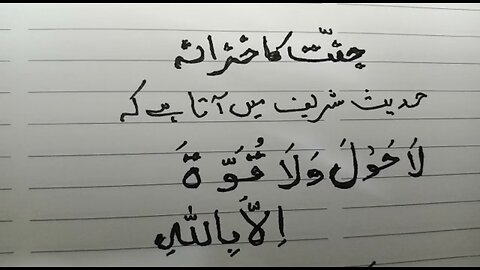 جنّت کا خزانہ
حدیث شریف میں آتا ہے کہ
لَا حَوْلَ وَلَا قُوَّةَ
اِلَّا بِاللّٰهِ